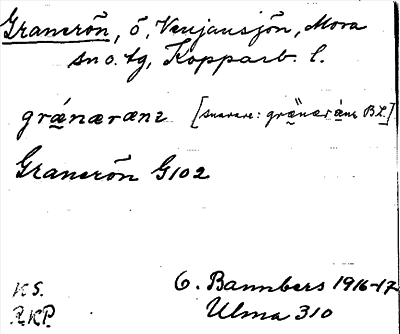 Granerön, ö, Venjansjön, Mora
sn o. tg, Kopparb. l.
grä́næræns [snarare: gränæràns B.L.]
Granerön G102
KS. O. Bannbers 1916-17
RKP. Ulma 310